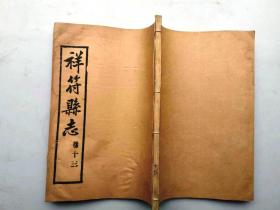 祥符縣志
卷十三